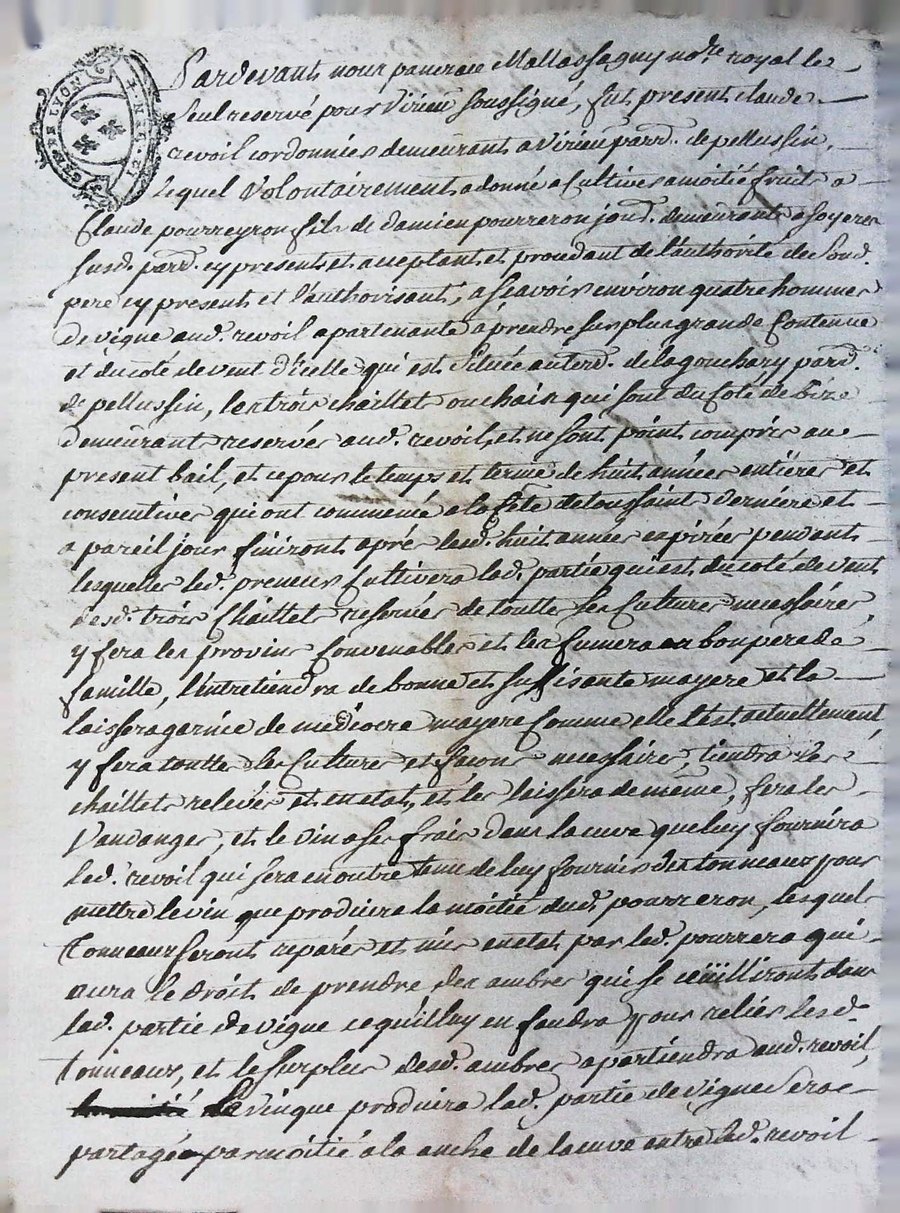 GEN LYON
Pardevant nous pancrace Mallassagny no.re royal le
seul reservé pour Virieu soussigné, fut present claude
revoil cordonnier demeurant a Virieu pard. de pellussin,
lequel Volontairement a donné a Cultiver a moitié fruit a
Claude pourreyron fils de damien pourreron jourd. demeurant a soyeres
susd. pard. cy present et acceptant et procedant de l'authorité de sond.
pere cy present et l'authorisant, a scavoir environ quatre hommes
de vigne aud. revoil apartenante a prendre sur plus grande Contenue
et du coté de vent d'icelle qui est située au terd. de la gouchary pard.
de pellussin, les trois chaillet ou chais qui sont du coté de bize
demeurant reservés aud. revoil, et ne sont point compris au
present bail, et ce pour le temps et terme de huit années entières et
consecutives qui ont commencé a la fête de toussaint derniere et
a pareil jour finiront aprés lesd. huit années expirées pendant
lesquelles led. preneur Cultivera lad. partie qui est du coté de vent
desd. trois Chaillet reservés de toutte ses Cultures necessaires,
y fera les provins Convenables et les fumera en bon pere de
famille, l'entretiendra de bonne et suffisante mayere et la
laissera garnie de médiocre mayere Comme elle l'est actuellement,
y fera toutte les Cultures et façons necessaires, tiendra les
chaillets relevés et en etat, et les laissera de même, fera les
Vandanges, et le vin a ses frais dans la cuve que luy fournira
led. revoil qui sera en outre tenu de luy fournir des tonneaux pour
mettre le vin que produira la moitié dud. pourreron, lesquels
Tonneaux seront reparés et mis en etat par led. pourrera qui
aura le droit de prendre des ambres qui se cüilliront dans
lad. partie de vigne ce qu'il luy en faudra pour relier lesd.
Tonneaux, et le surplus desd. ambres apartiendra aud. revoil,
le vin que produira lad. partie de vigne sera
partagé par moitié a la anche de la cuve entre led. revoil